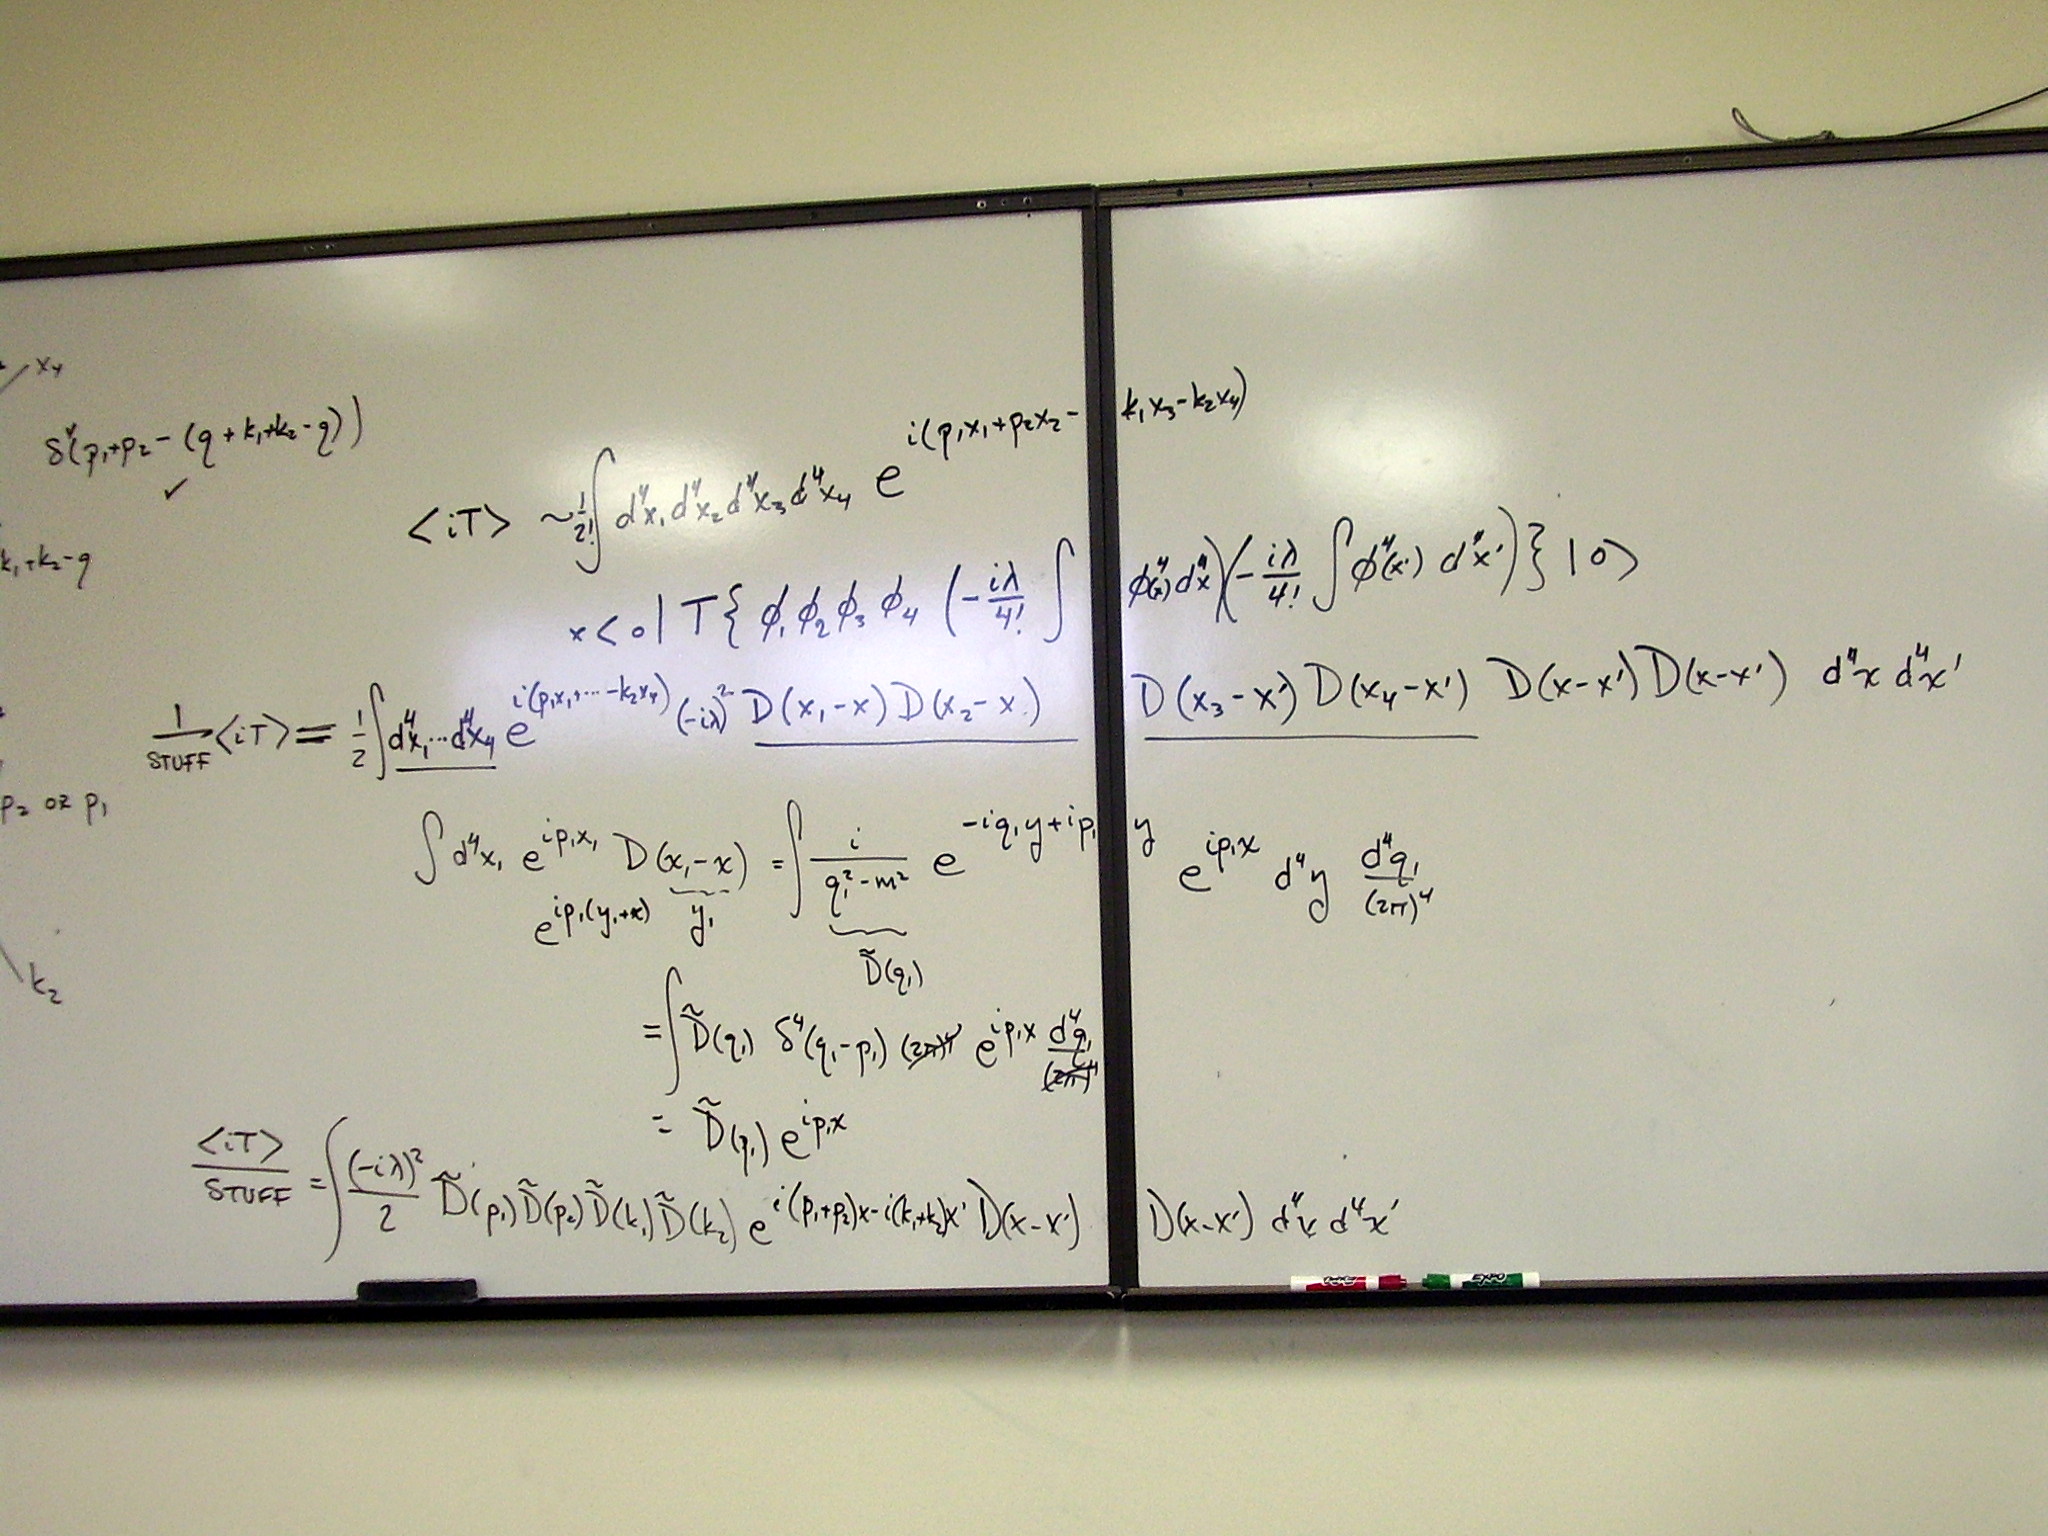 x₄
δ⁴(p₁+p₂-(q+k₁+k₂-q))
✓
k₁+k₂-q
p₂ or p₁
k₂
<iT> ~ 1/2! ∫ d⁴x₁ d⁴x₂ d⁴x₃ d⁴x₄ e^{i(p₁x₁+p₂x₂-k₁x₃-k₂x₄)}
× <0| T{ ϕ₁ ϕ₂ ϕ₃ ϕ₄ (-iλ/4! ∫ ϕ⁴(x) d⁴x)(-iλ/4! ∫ ϕ⁴(x') d⁴x') } |0>
1/STUFF <iT> = 1/2 ∫ d⁴x₁...d⁴x₄ e^{i(p₁x₁+...-k₂x₄)} (-iλ)² D(x₁-x) D(x₂-x) D(x₃-x') D(x₄-x') D(x-x') D(x-x') d⁴x d⁴x'
∫ d⁴x₁ e^{ip₁x₁} D(x₁-x) = ∫ i/(q₁²-m²) e^{-iq₁y+ip₁y} e^{ip₁x} d⁴y d⁴q₁/(2π)⁴
e^{ip₁(y₁+x)} y₁
D̃(q₁)
= ∫ D̃(q₁) δ⁴(q₁-p₁) (2π)⁴ e^{ip₁x} d⁴q₁/(2π)⁴
= D̃(p₁) e^{ip₁x}
<iT>/STUFF = ∫ (-iλ)²/2 D̃(p₁) D̃(p₂) D̃(k₁) D̃(k₂) e^{i(p₁+p₂)x-i(k₁+k₂)x'} D(x-x') D(x-x') d⁴x d⁴x'
EXPO